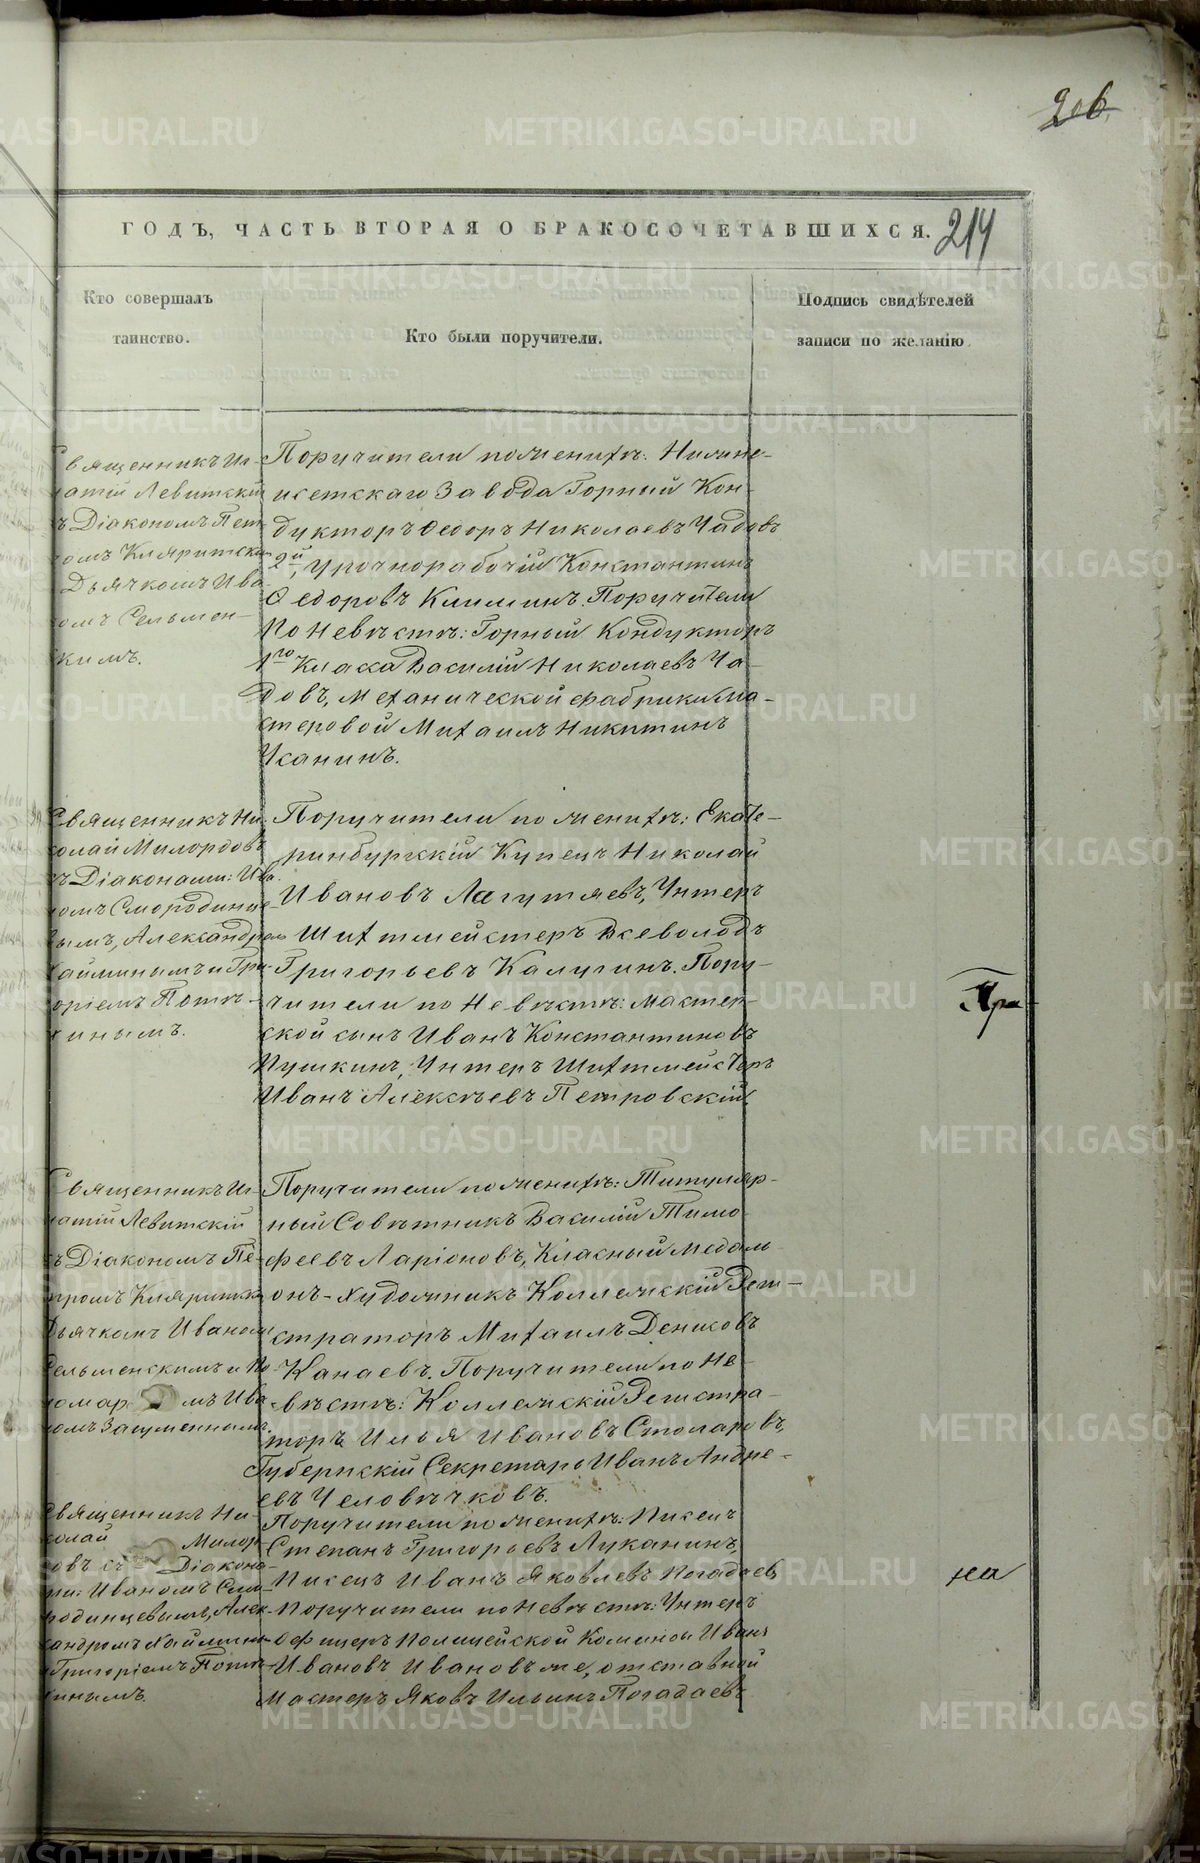 206
ГОДЪ, ЧАСТЬ ВТОРАЯ О БРАКОСОЧЕТАВШИХСЯ.
214
Кто совершалъ
таинство.
Кто были поручители.
Подпись свидѣтелей
записи по желанію.
Священникъ Иг-
натій Левитскій
съ Діакономъ Пет-
ромъ
Дьячкомъ Ива-
номъ Сельмен-
скимъ.
Поручители по женихѣ: Нижне-
исетскаго Завода Горный Кон-
дукторъ Ѳедоръ Николаевъ Чадовъ
2й, Урочнорабочій Константинъ
Ѳедоровъ Климинъ. Поручители
по Невѣстѣ: Горный Кондукторъ
1го Класса Василій Николаевъ Ча-
довъ, Механической фабрики ма-
стеровой Михаилъ Никитинъ
Усанинъ.
Священникъ Ни-
колай Милордовъ
съ Діаконами: Ива-
номъ Смородинце-
вымъ, Александромъ
и Гри-
горіемъ Поты-
Поручители по женихѣ: Екате-
ринбургскій Купецъ Николай
Ивановъ Лагутяевъ, Унтеръ
Шихтмейстеръ Всеволодъ
Григорьевъ Калугинъ. Пору-
чители по Невѣстѣ: Мастер-
ской сынъ Иванъ Константиновъ
Пушкинъ, Унтеръ Шихтмейстеръ
Иванъ Алексѣевъ Петровскій
При
Священникъ Иг-
натій Левитскій
съ Діакономъ Пе-
тромъ
Дьячкомъ Иваномъ
Сельменскимъ и По-
номаремъ Ива-
номъ Загуменнымъ.
Поручители по женихѣ: Титуляр-
ный Совѣтникъ Василій Тимо-
феевъ Ларіоновъ, Класный Медаль-
онъ-Художникъ Коллежскій Реги-
страторъ Михаилъ Денисовъ
Канаевъ. Поручители по Не-
вѣстѣ: Коллежскій Регистра-
торъ Илья Ивановъ Столаровъ,
Губернскій Секретарь Иванъ Андре-
евъ Человѣчковъ.
Священникъ Ни-
колай Милор-
довъ съ Діакона-
ми: Иваномъ Смо-
родинцевымъ, Алек-
сандромъ
и Григоріемъ
Поручители по женихѣ: Писецъ
Степанъ Григорьевъ Луканинъ,
Писецъ Иванъ Яковлевъ Погадаевъ
Поручители по Невѣстѣ: Унтеръ
Офицеръ Полицейской Команды Иванъ
Ивановъ Ивановъ же, отставной
Мастеръ Яковъ Ильинъ Погадаевъ
на
METRIKI.GASO-URAL.RU